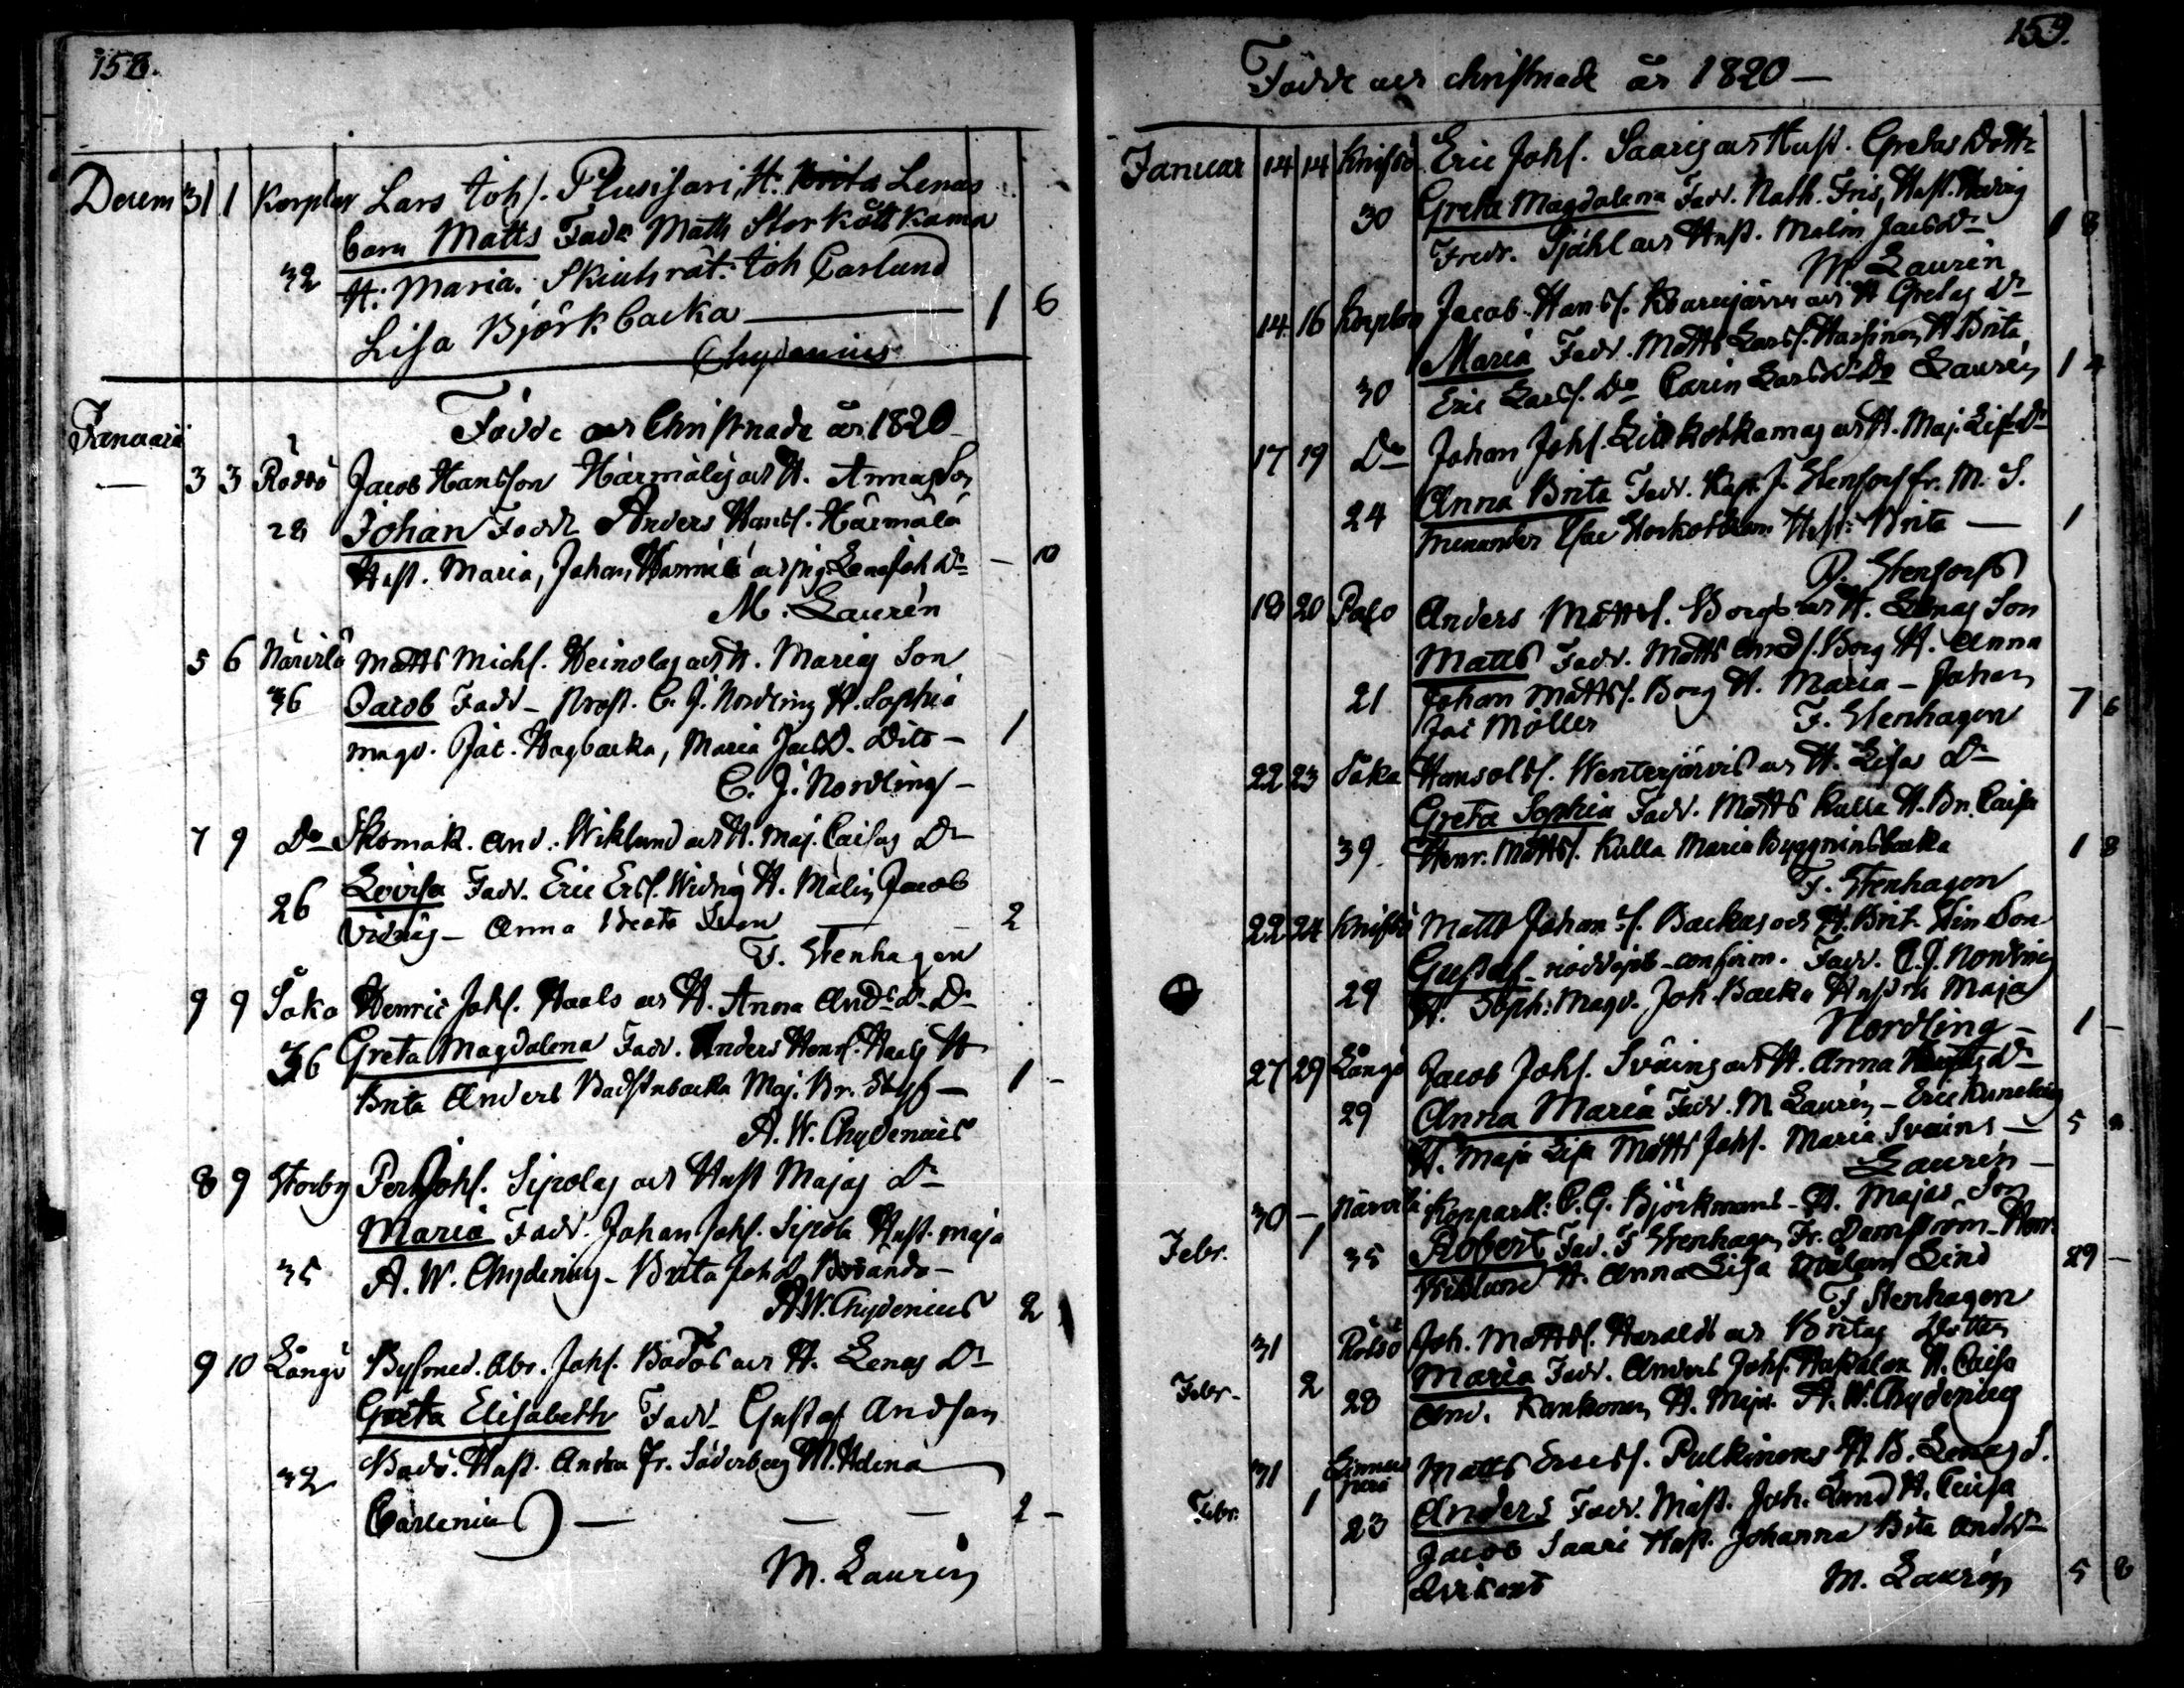 158.
Decem 31 1 Korplax Lars Joh s. Plusisari, H. Lenas
barn Matts Fadr Matts Storkått kama
32 H: Maria. Joh Carlund
Lisa Björkbacka — 1 6
Chydenius
Januari Födde och Christnade år 1820
— 3 3 Rödsö Jacob Hansson Härmälä och H. Annas Son
28 Johan Fadr Anders Hans s. Härmälä
Hust. Maria, Johan Härmälä och pig. Lena Joh Dr — 10
M. Laurén
5 6 Närvilä Matts Mich s. Heinolas och H. Marias Son
36 Jacob Fadr — Prost. C. J. Nordling H. Sophia
Magd. Jac. Hagbacka, Maria Jacobs D. Dito — 1
C. J. Nordling —
7 9 Do Skomak. And. Wiklund och H. Maj. Caisas Dr
26 Lovisa Fadr. Eric Ers s. Widnäs H. Malin, Jacob
Vidnäs — Anna Beata — 2
F. Stenhagen
9 9 Såka Henric Joh s. Haals och H. Anna Ands Dr Dr
36 Greta Magdalena Fadr. Anders Henr s. Haals H
Brita Anders Badstubacka Maj. Br. — 1 -
A. W. Chydenius
8 9 Storby Per Joh s. Sipolas och Hust Majas Dr
Maria Fadr. Johan Joh s. Sipola Hust. Maja
35 A. W. Chydenius — Brita Joh D. —
A. W. Chydenius 2
9 10 Långö Bysmed. Abr. Joh s. Badös och H. Lenas Dr
Greta Elisabeth Fadr. Gustaf Andsson
32 Badö. Hust. Anna Fr. Söderberg M. Helena
Carlenius — — — 2 -
M. Laurén
159.
Födde och christnade år 1820 —
Januar 14 14 Knifsö Eric Joh s. Saaris och Hust. Gretas Dottr
30 Greta Magdalena Fadr. Nath. Friis, Hust. Hedvig
Fredr. Sjöhl och Hust. Malin Jacobs Dr 1 8
M. Laurén
14 16 Korplax Jacob Hans s. Kvarnjärvis och H Gretas Dr
Maria Fadr. Matts Lars s. H. Brita
30 Eric Lars s. Do Carin Lars Dr Do Laurén 1 4
17 19 Do Johan Joh s. Lillkåtkamas och H. Maj. Lis. Dr
24 Anna Brita Fadr. Kapt. J. Stensorff fr. M. S.
Storkåtkam. Hust. Brita — 1
Stensorff
18 20 Palo Anders Matts s. Borgs och H. Lenas Son
Matts Fadr. Matts And s. Borg H. Anna
21 Johan Matts s. Borg H. Maria — Johan
Jac Möller F. Stenhagen 7 6
22 23 Såka Hans Ol s. Wenterjärvis och H. Lisas Dr
Greta Sophia Fadr. Matts Kulla H. Br. Caisa
39. Henr. Matts s. Kulla Maria Byggninsbacka 1 8
F. Stenhagen
22 24 Knifsö Matts Johan s. Backas och H. Brit. Son
29 Gustaf — nöddöpt — confirm. Fadr. C. J. Nordling
H. Soph: Magd. Joh. Backa Hustru Maja
Nordling — 1 —
27 29 Långö Jacob Joh s. Svains och H. Anna Dr
29 Anna Maria Fadr. M. Laurén — Eric Runeberg
H. Maja Lisa Matts Joh s. Maria Svains — 5
Laurén —
30 — Närvilä Kopparsl: C. G. Björkmans — H. Majas Son
Febr. 1 35 Robert Fad. F Stenhagen, Fr. Damström — Henr.
Wiklund H. Anna Lisa Lind 29 —
F Stenhagen
31 Rödsö Joh. Matts s. Haralds och Britas Dotter
Febr. 2 28 Maria Fadr. Anders Joh s. H. Caisa
And. Kankonen H. Maja. A. W. Chydenius
31 Matts Erics s. Pulkinens H B. Lenas S.
Febr. 1 23 Anders Fadr. Mäst. Joh. Lund H. Caisa
Jacob Saari Hust. Johanna Brita And Dr
M. Laurén 5 8